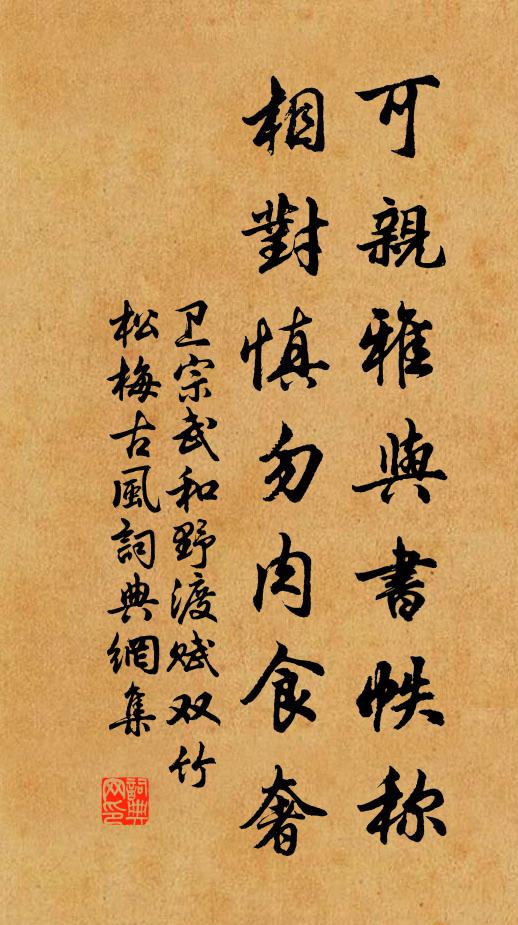 可親雅與書帙称
相對慎勿肉食奢
卫宗武和野渡赋双竹
松梅古風詞典網集
詞典网印